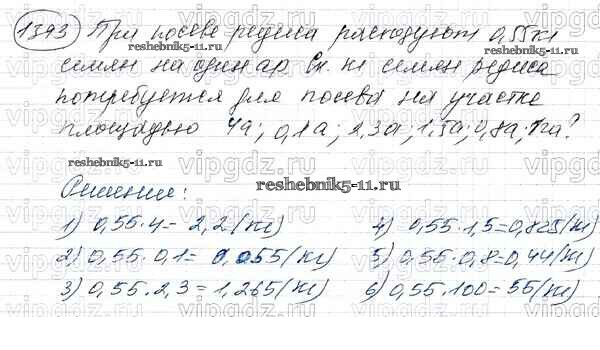 1393 При посеве редиса расходуют 0,55 кг
семян на один ар. Ск. кг семян редиса
потребуется для посева на участке
площадью 4а; 0,1а; 2,3а; 1,5а; 0,8а; 1га?
Решение:
1) 0,55·4= 2,2 (кг)
2) 0,55·0,1= 0,055 (кг)
3) 0,55·2,3=1,265 (кг)
4) 0,55·1,5=0,825 (кг)
5) 0,55·0,8=0,44 (кг)
6) 0,55·100=55 (кг)
reshebnik5-11.ru
reshebnik5-11.ru
reshebnik5-11.ru
reshebnik5-11.ru
vipgdz.ru